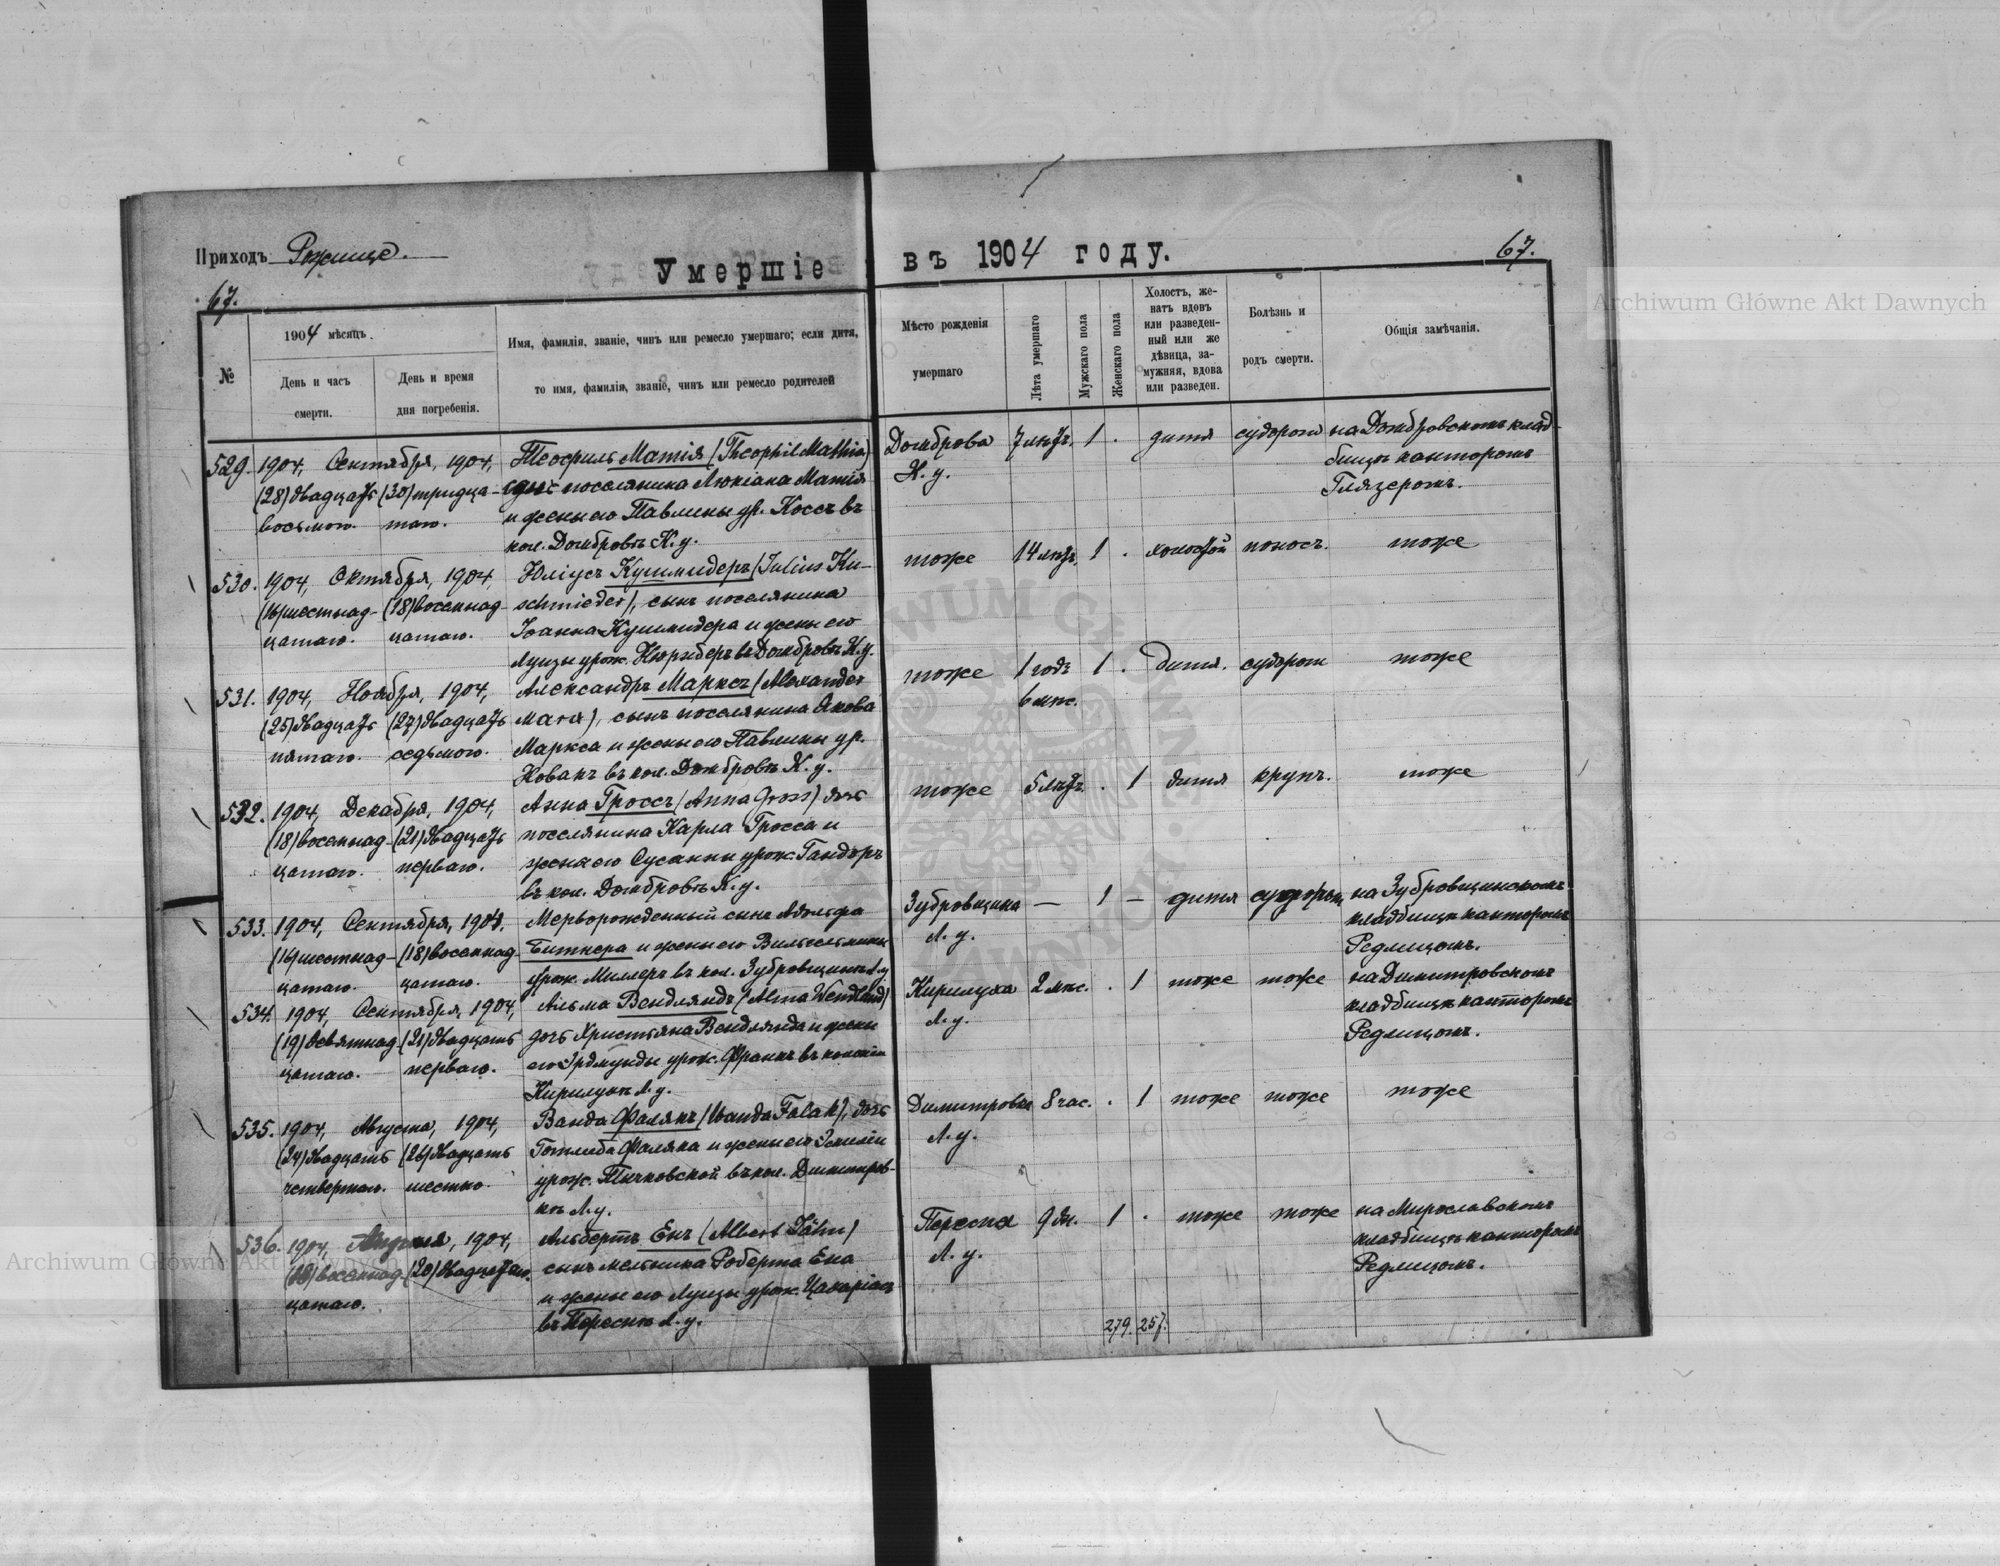 Приходъ Рожище.
Умершіе въ 1904 году.
67.
67.
№
1904 мѣсяцъ.
День и часъ
смерти.
День и время
дня погребенія.
Имя, фамилія, званіе, чинъ или ремесло умершаго; если дитя,
то имя, фамилія, званіе, чинъ или ремесло родителей
Мѣсто рожденія
умершаго
Лѣта умершаго
Мужскаго пола
Женскаго пола
Холостъ, же-
натъ вдовъ
или разведен-
ный или же
дѣвица, за-
мужняя, вдова
или разведен.
Болѣзнь и
родъ смерти.
Общія замѣчанія.
529. 1904, Сентября, 1904, Теофиль Матія (Theophil Mathia) Домброва 7 лѣтъ. 1 . дитя судорог на Домбровскомъ клад-
(28) двадцать (30) тридца- сынъ поселянина Люкіана Матія Н. у. бищѣ канторомъ
восьмого. таго. и жены его Павлины ур. Коссъ въ Глязеромъ.
кол. Домбровѣ Н. у.
530. 1904, Октября, 1904, Юліусъ Кушмидеръ (Julius Ku- тоже 14 лѣтъ. 1 . холостой поносъ. тоже
(16) шестнад- (18) восемнад- schmieder), сынъ поселянина
цатаго. цатаго. Іоанна Кушмидера и жены его
Луизы урож. Нюрнберъ въ Домбровѣ Н. у.
531. 1904, Ноября, 1904, Александръ Марксъ (Alexander тоже 1 годъ 1 . дитя. судорог тоже
(25) двадцать (27) двадцать Marx), сынъ поселянина Якова 6 мѣс.
пятаго. седьмого. Маркса и жены его Павлины ур.
Новакъ въ кол. Домбровѣ Н. у.
532. 1904, Декабря, 1904, Анна Гроссъ (Anna Gross) дочь тоже 5 лѣтъ. . 1 дитя крупъ. тоже
(18) восемнад- (21) двадцать поселянина Карла Гросса и
цатаго. перваго. жены его Сусанны урож. Гандеръ
въ кол. Домбровѣ Н. у.
533. 1904, Сентября, 1904, Мерворожденный сынъ Адольфа Зубровщина — 1 — дитя судорог на Зубровщинскомъ
(16) шестнад- (18) восемнад- Битнера и жены его Вильгельмины Л. у. кладбищѣ канторомъ
цатаго. цатаго. урож. Миллеръ въ кол. Зубровщинѣ Л. у. Редлицомъ.
534. 1904, Сентября, 1904, Альма Вендляндъ (Alma Wendland) Кирилуха 2 мѣс. . 1 тоже тоже на Димитровскомъ
(19) девятнад- (21) двадцать дочь Христьяна Вендлянда и жены Л. у. кладбищѣ канторомъ
цатаго. перваго. его Эрдмунды урож. Франкъ въ колоніи Редлицомъ.
Кирилухѣ Л. у.
535. 1904, Августа, 1904, Ванда Фалякъ (Wanda Falak), дочь Димитровка 8 час. . 1 тоже тоже тоже
(24) двадцать (26) двадцать Готлиба Фаляка и жены его Эмиліи Л. у.
четвертаго. шестого. урож. Тычковской въ кол. Димитров-
кѣ Л. у.
536. 1904, Августа, 1904, Альбертъ Енъ (Albert Jähn) Пересна 9 дн. 1 . тоже тоже на Мирославскомъ
(18) восемнад- (20) двадцатаго. сынъ мельника Роберта Ена Л. у. кладбищѣ канторомъ
цатаго. и жены его Луизы урож. Цахаріасъ Редлицомъ.
въ Переснѣ Л. у.
279. 257.
Archiwum Główne Akt Dawnych
Archiwum Główne Akt Dawnych